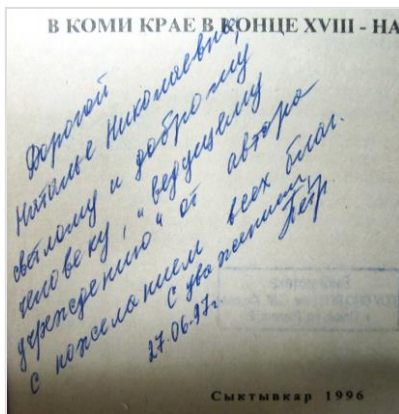 В КОМИ КРАЕ В КОНЦЕ XVIII - НА
Дорогой
Наталье Николаевне,
светлому и доброму
человеку, "ведущему
учреждению" от автора
с пожеланием всех благ.
С уважением
Петр.
27.06.97г.
Сыктывкар 1996